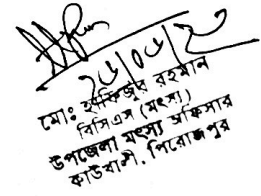 ২৬/০৬/২
মোঃ হাফিজুর রহমান
বিসিএস (মৎস্য)
উপজেলা মৎস্য অফিসার
কাউখালী, পিরোজপুর